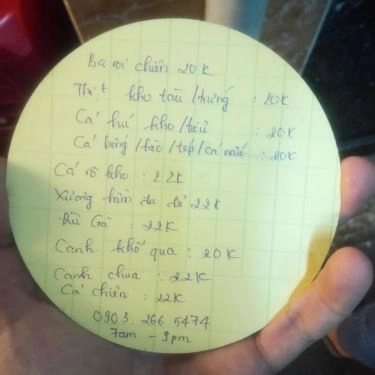 Ba rọi chiên 20K
Thịt kho tàu/trứng : 20K
Cá hú kho/tiêu : 20K
Cá bóng/kèo/tép/cá nấu : 20K
Cá rô kho : 22K
Xương hầm đu đủ 22K
Đùi Gà : 22K
Canh khổ qua : 20K
Canh chua : 22K
Cá chiên : 22K
0903.266 5474
7am - 9pm